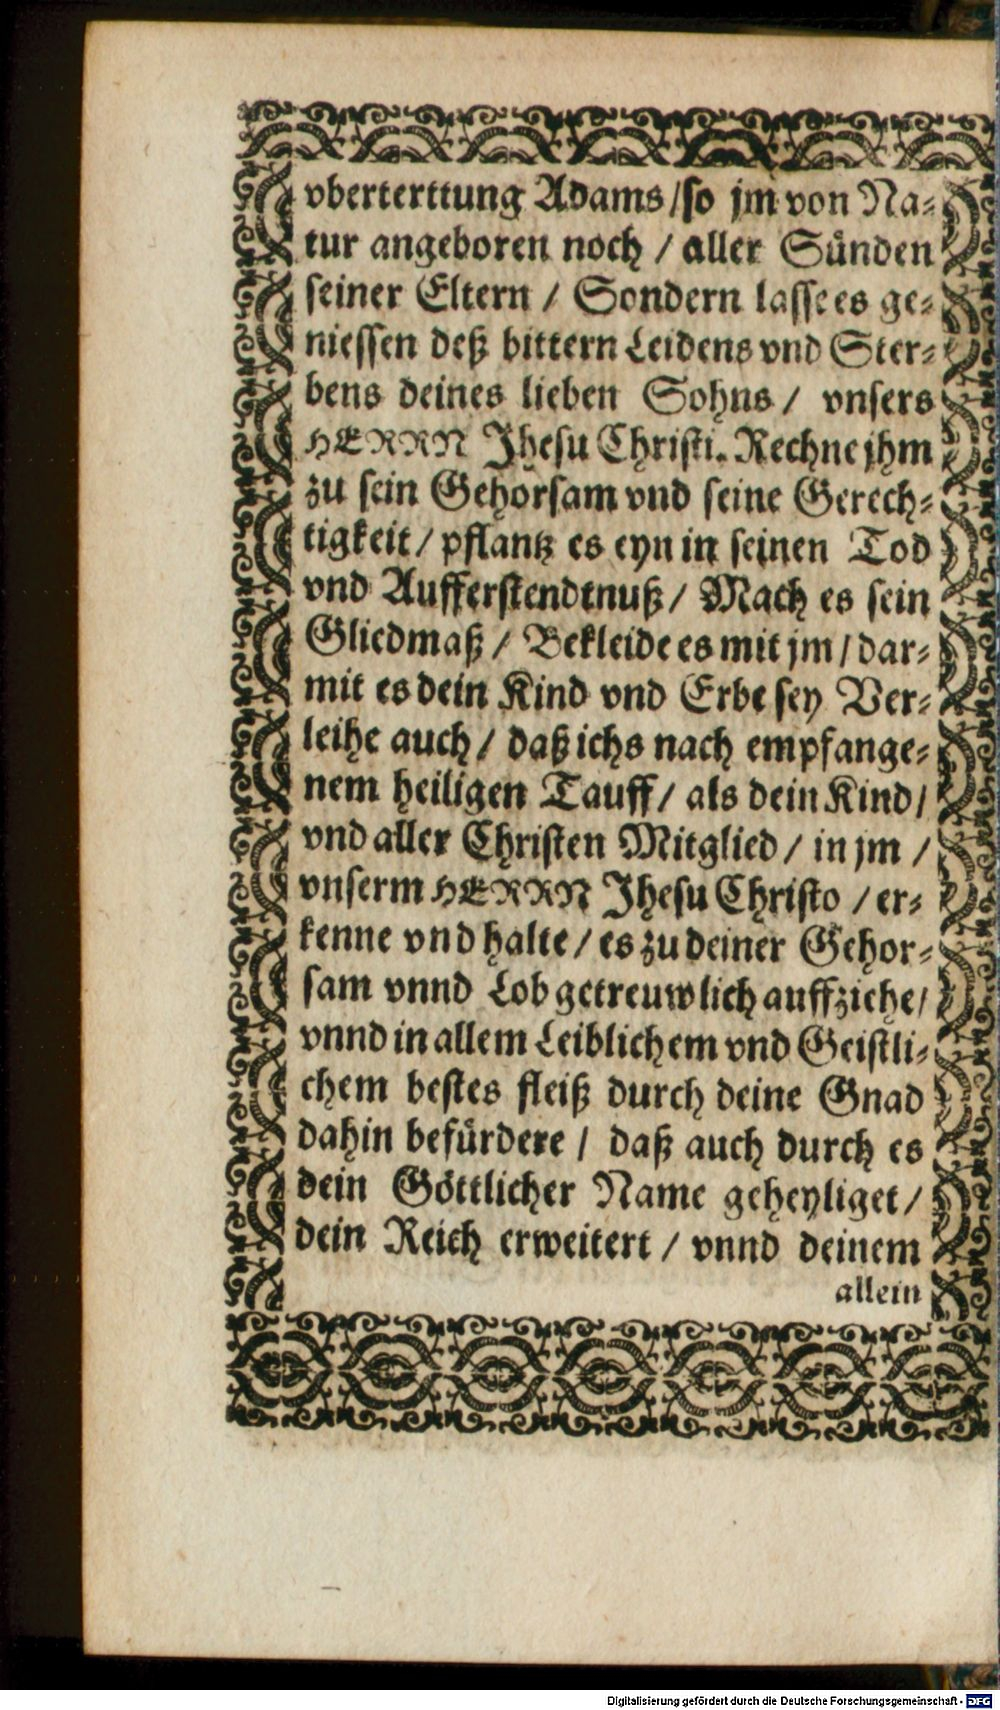 vberterttung Adams / so jm von Na⸗
tur angeboren noch / aller Sünden
seiner Eltern / Sondern lasse es ge⸗
niessen deß bittern Leidens vnd Ster⸗
bens deines lieben Sohns / vnsers
HERRN Jhesu Christi. Rechne jhm
zu sein Gehorsam vnd seine Gerech⸗
tigkeit / pflantz es eyn in seinen Tod
vnd Aufferstendtnuß / Mach es sein
Gliedmaß / Bekleide es mit jm / dar⸗
mit es dein Kind vnd Erbe sey Ver⸗
leihe auch / daß ichs nach empfange⸗
nem heiligen Tauff / als dein Kind /
vnd aller Christen Mitglied / in jm /
vnserm HERRN Jhesu Christo / er⸗
kenne vnd halte / es zu deiner Gehor⸗
sam vnnd Lob getreuwlich auffziehe /
vnnd in allem Leiblichem vnd Geistli⸗
chem bestes fleiß durch deine Gnad
dahin befürdere / daß auch durch es
dein Göttlicher Name geheyliget /
dein Reich erweitert / vnnd deinem
allein
Digitalisierung gefördert durch die Deutsche Forschungsgemeinschaft - DFG